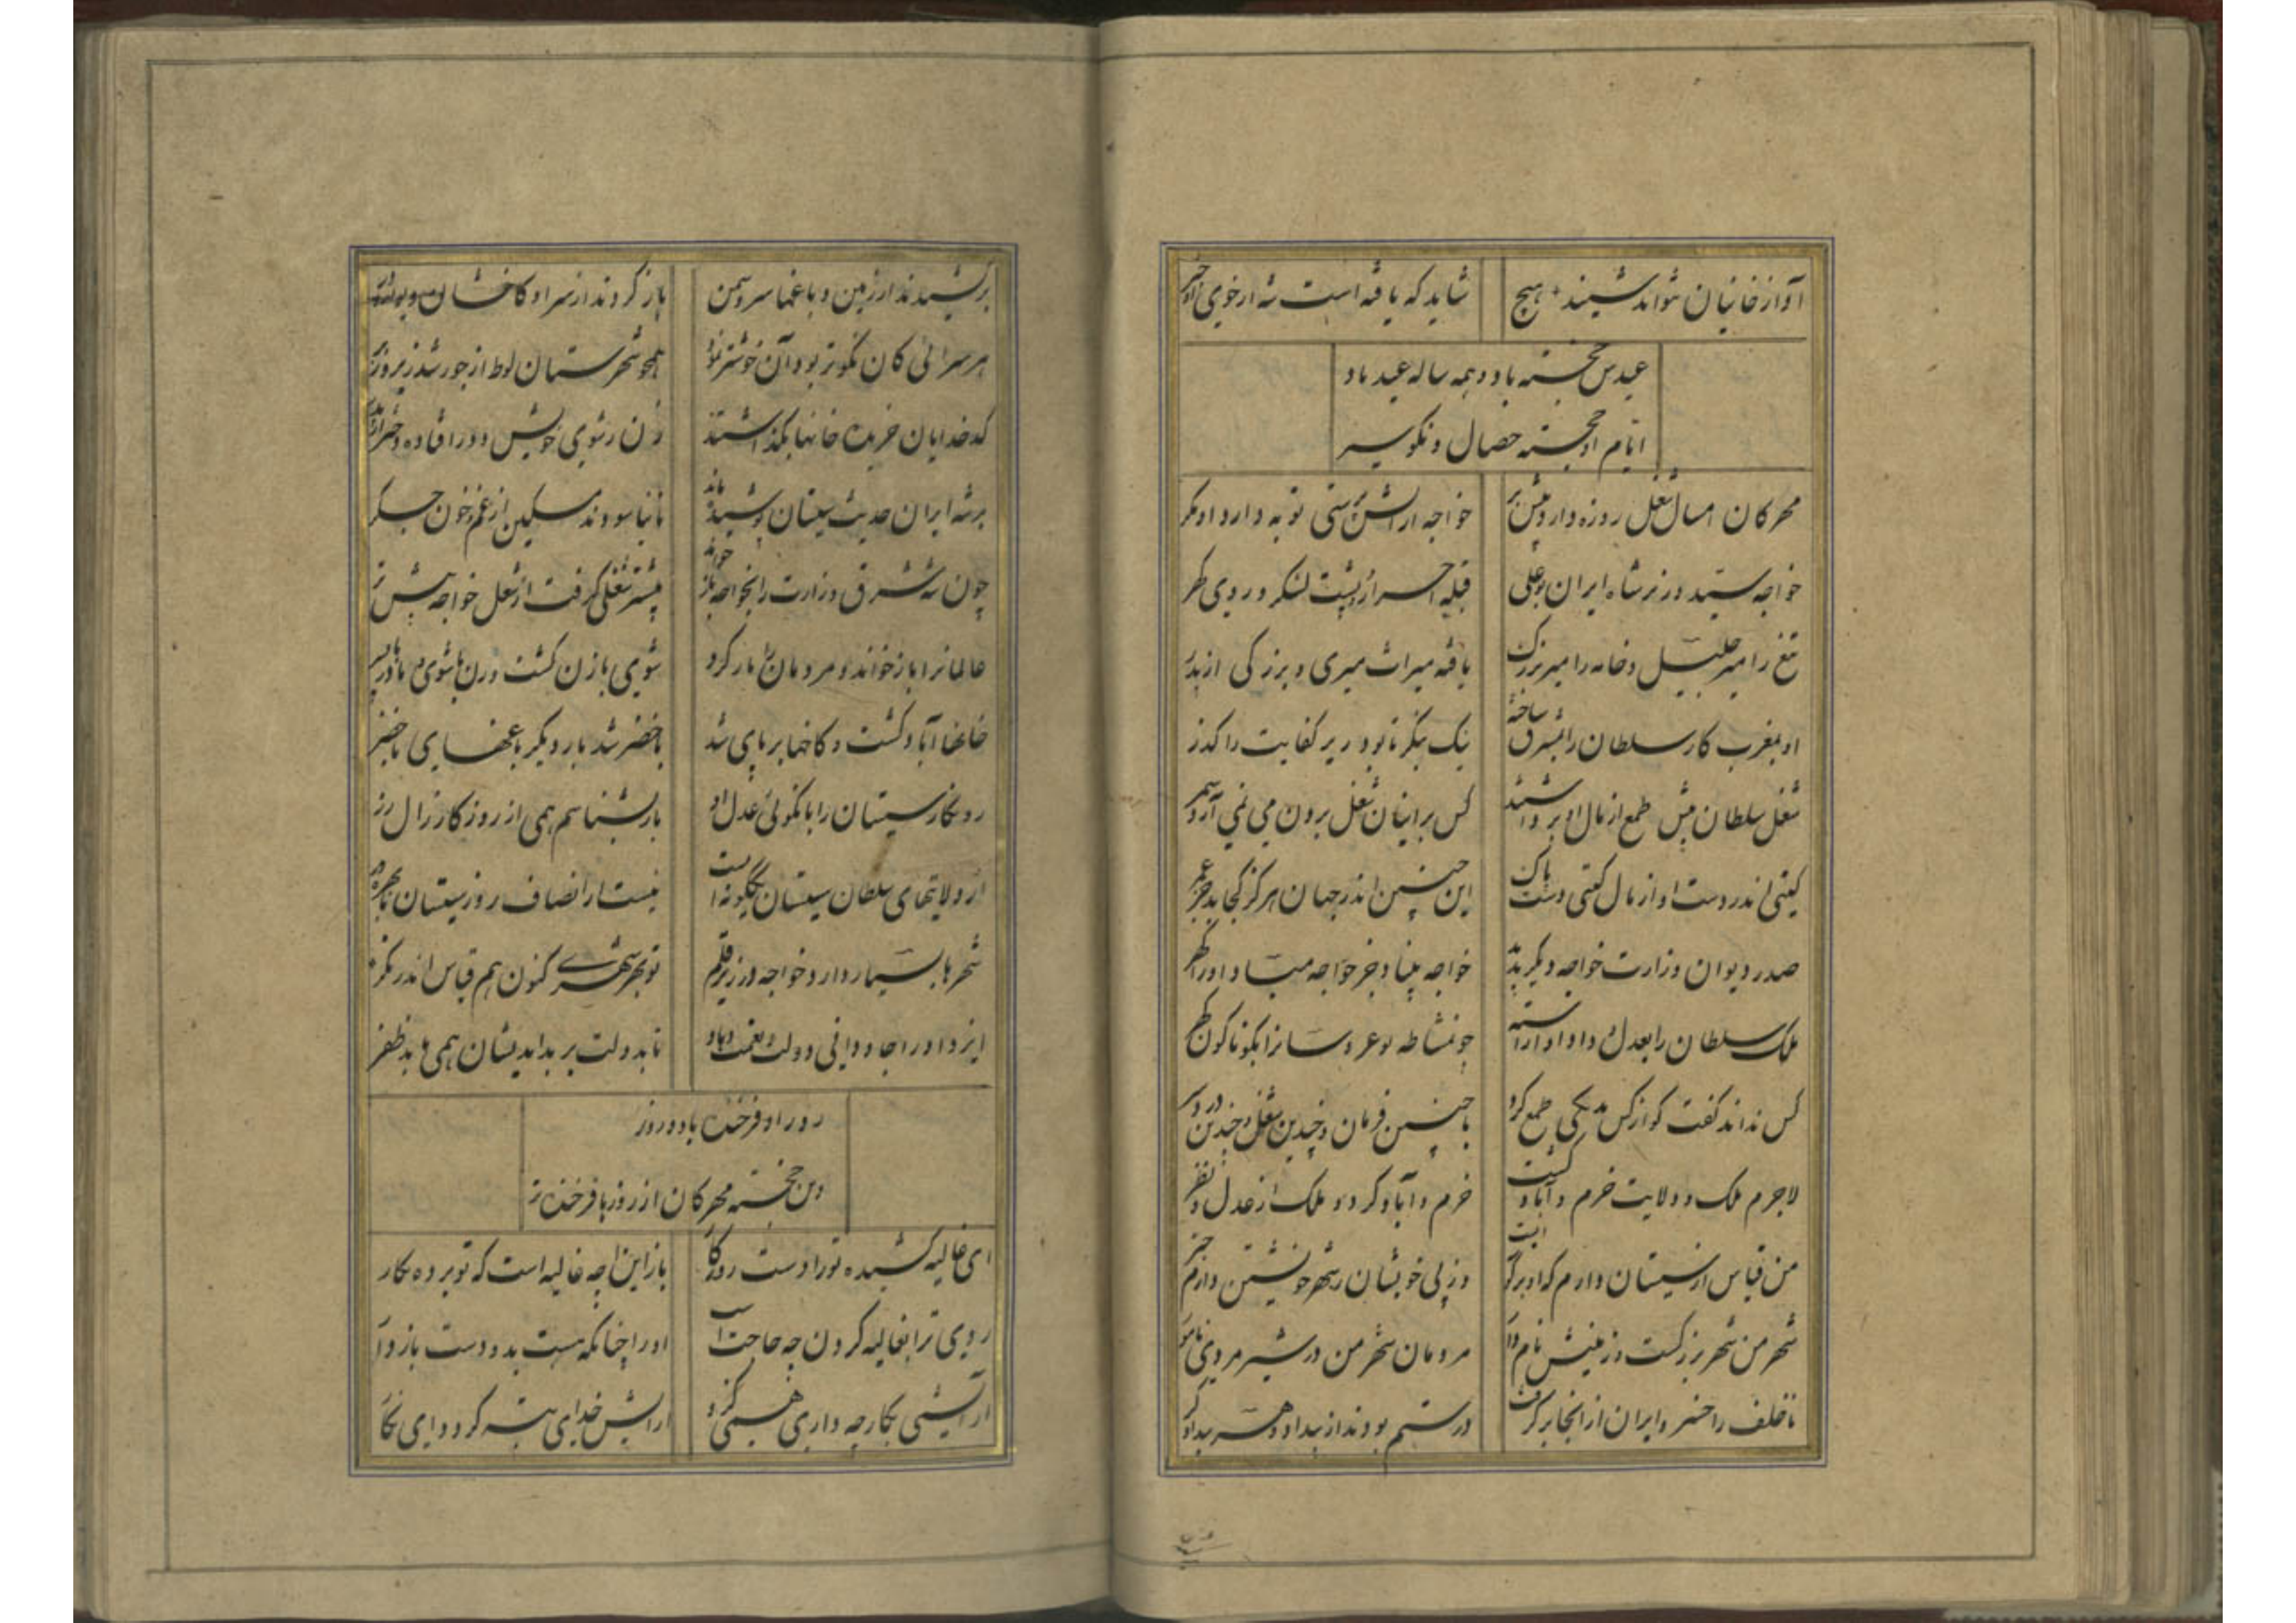 آواز خانیان نتواند شنید هیچ شاید که یافته است شه از خوی او خبر
عیدش خجسته باد و همه ساله عید باد
ایام او خجسته خصال و نکو سیر
مهرکان امسال شغل روزه دارد پیش بر خواجه از آتش پرستی توبه دارد او مکر
خواجه سید وزیر شاه ایران بوعلی قبله احرار و پشت لشکر و روی کهر
تیغ را میر جلیل و خامه را میر بزرک یافته میراث میری و بزرکی از پدر
او بمغرب کار سلطان را بمشرق ساخته نیک بنکر تا بود زیر کفایت را کذر
شغل سلطان پیش طمع از مال او برداشتند کس بر اینان شغل برون می نمی آرد بسر
کیتی اندر دست او از مال کیتی دست پاک این چنین اندر جهان هرکز کجا بد جز عمر
صدر دیوان وزارت خواجه دیکر بدید خواجه بیناد جز خواجه مبیناد او را کهر
ملک سلطان را بعدل و داد او آراسته چو مشاطه نو عروسانرا بکوناکون کهر
کس نداند کفت کو از کس بیکی طمع کرد با چنین فرمان و چندین شغل و چندین در و سر
لاجرم ملک و ولایت خرم و آباد کشت خرم و آباد کردد ملک از عدل و نظر
من قیاس از سیستان دارم که او شهر منست وز پی خویشان ز شهر خویشتن دارم خبر
شهر من شهر بزرکست و زمینش نامدار مردمان شهر من در شیر مردی نامور
تا خلف را خسرو ایران از آنجا برکرفت در ستم بودند از بیداد هر بیدادکر
برکشیدند از زمین و باغها سرو و سمن باز کردند از سر او کاخشان
هر سرائی کان نکوتر بود و آن خوشتر نمود همچو شهرستان لوط از جور شد زیر و زبر
کدخدایان خریده خانها بکذاشتند زن ز شوی خویش دور افتاده و دختر ز
بر شه ایران حدیث سیستان پوشیده ماند تا نیاسودند مسکین از غم و خون جکر
چون شه شرق وزارت را بخواجه باز خواند پیشتر شغلی کرفت از شغل خواجه پیشتر
عالمانرا باز خواند و مردمان را بار کرد شوی با زن کشت و زن با شوی و مادر با پسر
خانها آباد کشت و کاخها بر پای شد با خضر شد بار دیکر باغهای با خضر
روزکار سیستان را با نکوئی عدل او باز نشناسم همی از روزکار زال زر
از ولایتهای سلطان سیستان یکگونه است نیست از انصاف روز سیستان
شهرها بسیار دارد خواجه در زیر قلم تو بهر شهری کنون هم قیاس اندر نکر
ایزد او را جاودانی دولت و نعمت دهاد تا بدولت بر بداندیشان همی یابد ظفر
روز او فرخنده باد و روز
وین خجسته مهرکان از روزها فرخنده تر
ای غالیه کشیده تو را دست روزکار باز این چه غالیه است که تو برده بکار
روی ترا بغالیه کردن چه حاجت است او را چنانکه هست بدو دست بازدار
آرایشی بکار چه داری همی کزو آرایش خدای تبه کردد ای نکار